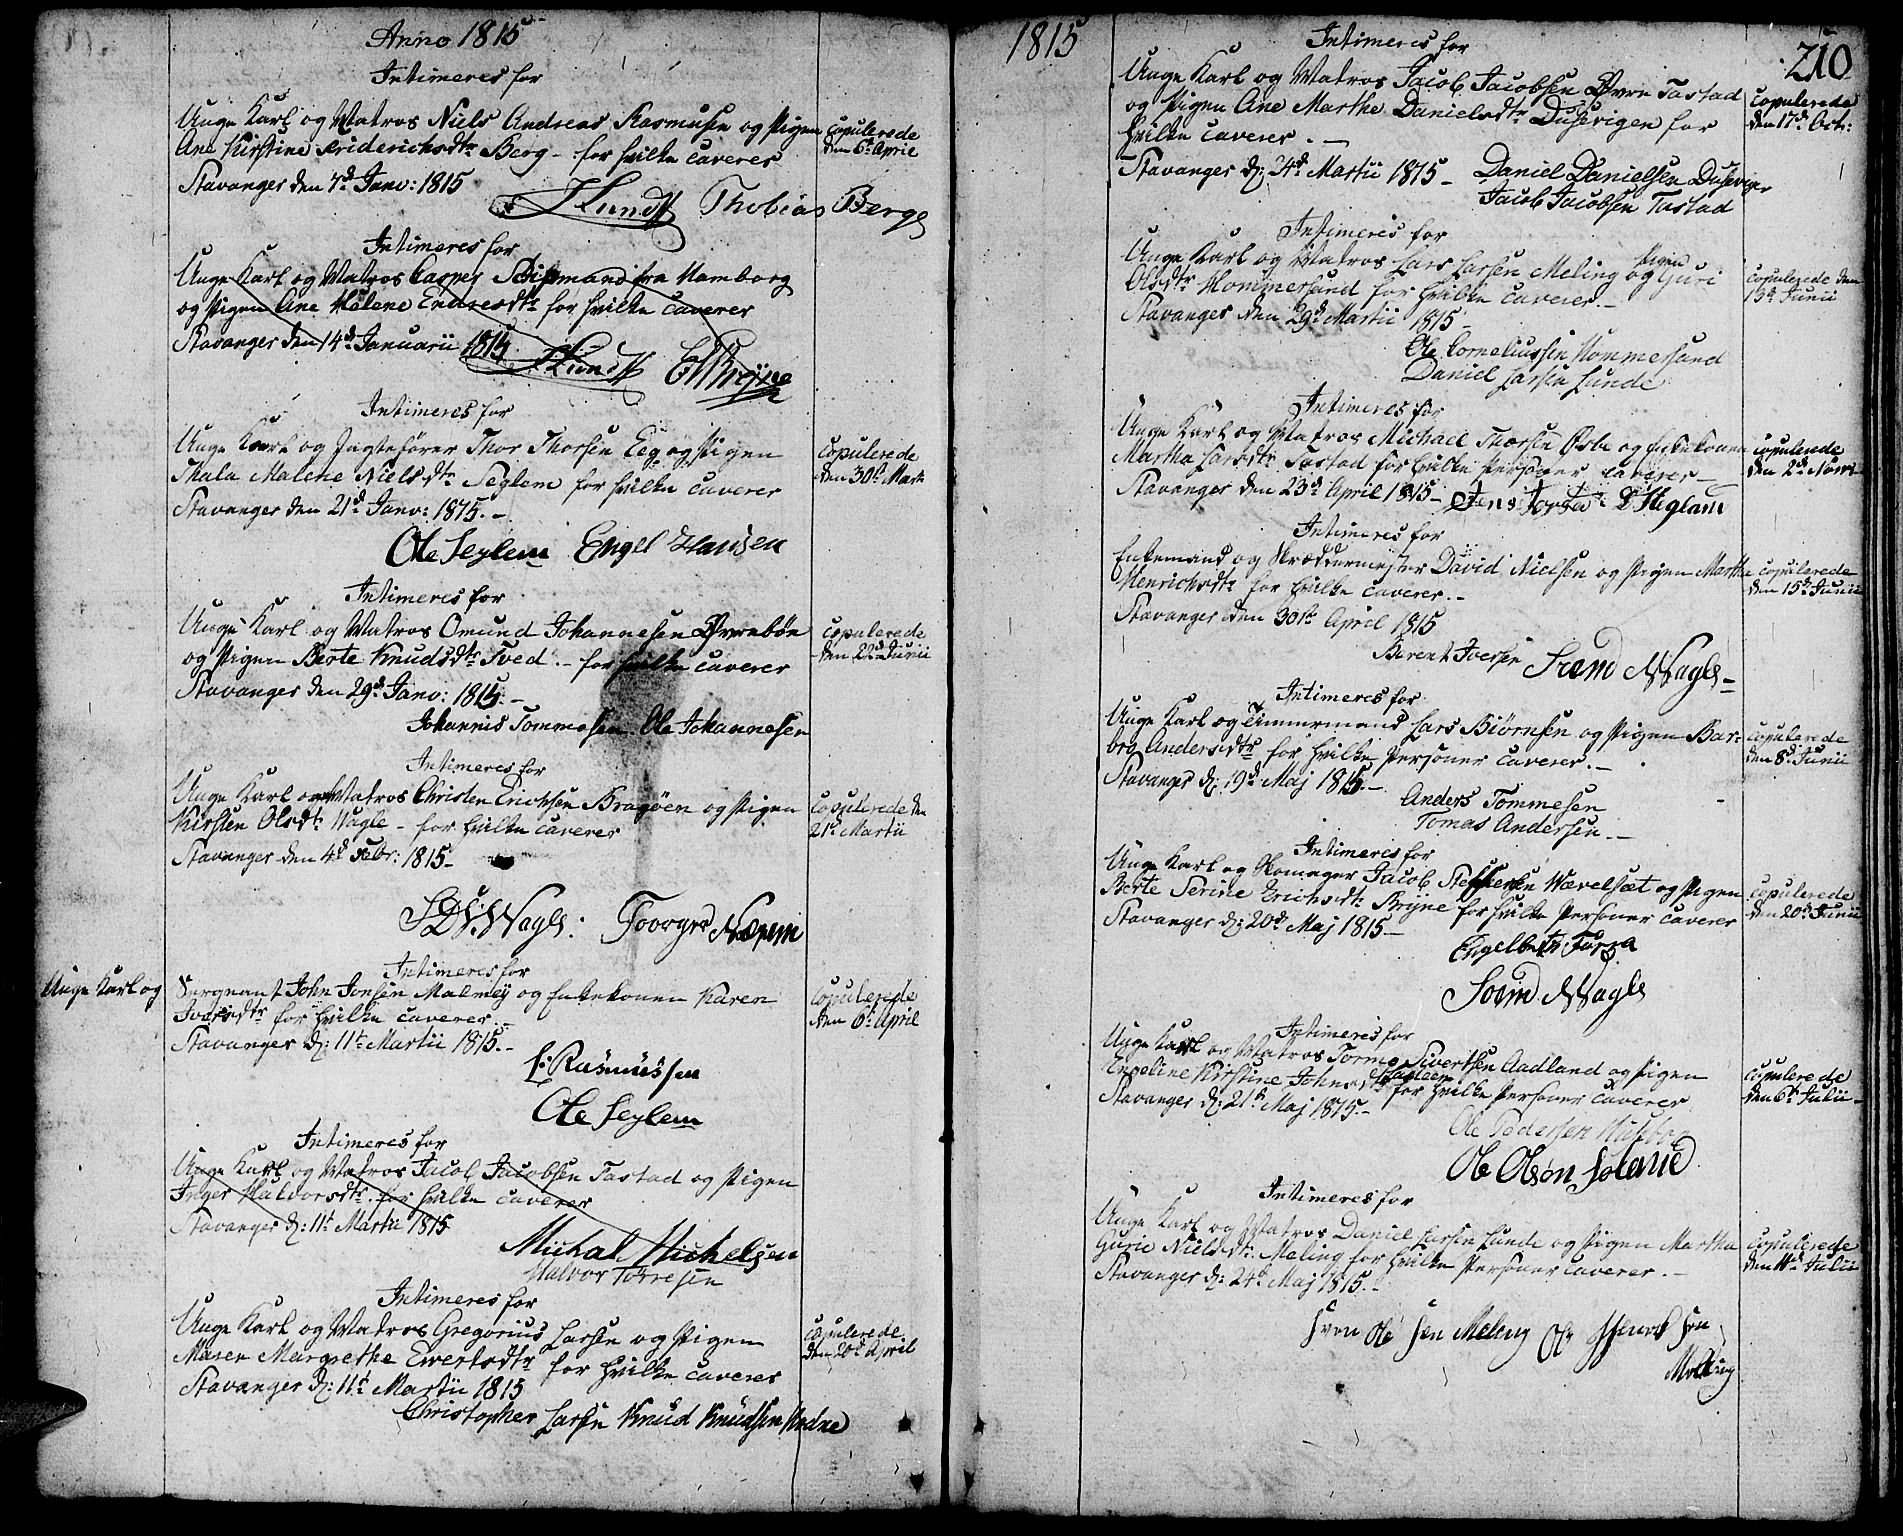 Anno 1815
Intimeres for
Unge Karl og Matros Niels Andreas Rasmusen og Pigen
Ane Kirstine Friderichsdtr Berg - for hvilke caverer
Stavanger den 7d Janv: 1815
copulerede
den 6t April
Lundt Thobias Berge
Intimeres for
Unge Karl og Matros Casper Schipmand fra Hamborg
og Pigen Ane Helene Endresdtr for hvilke caverer
Stavanger den 14d Januarii 1815
Lundt
Intimeres for
Unge Karl og Jagtefører Thor Thorsen Eeg og Pigen
Thala Malene Nielsdtr Seglem for hvilke caverer
Stavanger den 21d Janv: 1815.-
copulerede
den 30t Marti
Ole Seglem Engel Hansen
Intimeres for
Unge Karl og Matros Omund Johannesen Øvrebøe
og Pigen Berte Knudsdtr Tved.- for hvilke caverer
Stavanger den 29d Janv: 1815.-
copulerede
den 22d Junii
Johannis Tommesen Ole Johannesen
Intimeres for
Unge Karl og Matros Christen Erichsen Bragøen og Pigen
Kirsten Olsdtr Vagle - for hvilke caverer
Stavanger den 4d Febr: 1815-
copulerede den
21d Martii
Wagle: Torger Næsem
Intimeres for
Unge Karl og Sergeant John Jonsen Malmey og Enkekonen Karen
Iversdtr for hvilke caverer
Stavanger d: 11t Martii 1815.-
copulerede
den 6t April
L: Rasmussen
Ole Seglem
Intimeres for
Unge Karl og Matros Jacob Jacobsen Tastad og Pigen
Inger Halvorsdtr for hvilke caverer
Stavanger d: 11t Martii 1815
Michal Michelsen
Halvor Torresen
Intimeres for
Unge Karl og Matros Gregorius Larsen og Pigen
Maren Margrethe Ewertsdtr for hvilke caverer
Stavanger d: 11t Martii 1815
copulerede
den 20d April
Christopher Larsen Knud Knudsen
1815
210
Intimeres for
Unge Karl og Matros Jacob Jacobsen Øvre Tastad
og Pigen Ane Marthe Danielsdtr Dusevigen for
hvilke caverer.-
Stavanger d: 24d Martii 1815-
copulerede
den 17d Oct:
Daniel Danielsen Dusevigen
Jacob Jacobsen Tastad
Intimeres for
Unge Karl og Matros Lars Larsen Meling og Pigen Guri
Olsdtr Hommersand for hvilke caverer.-
Stavanger den 29d Martii 1815-
copulerede den
13d Junii
Ole Corneliussen Hommersand
Daniel Larsen Lunde
Intimeres for
Unge Karl og Matros Michael Thorsen Østbø og Enkekonen
Martha Larsdtr Tastad for hvilke Personer caverer-
Stavanger den 23d April 1815-
copulerede
den 2d Novr
Jens Torsen
Intimeres for
Enkemand og Skreddermester David Nielsen og Pigen Marthe
Henrichsdtr for hvilke caverer.-
Stavanger den 30t April 1815
copulerede
den 15d Junii
Berent Iversen Svend Wagle-
Intimeres for
Unge Karl og Timmermand Lars Biørnsen og Pigen Bar-
bro Andersdtr for hvilke Personer caverer.-
Stavanger d: 19d Maj 1815.-
copulerede
den 8d Junii
Anders Tommesen
Tomas Andersen.-
Intimeres for
Unge Karl og Skomager Jacob Steffensen Wævelsæt og Pigen
Berte Serine Erichsdtr Bryne for hvilke Personer caverer
Stavanger d: 20d Maj 1815-
copulerede
den 20d Junii
Engelbreth
Svend Wagle
Intimeres for
Unge Karl og Matros Tormo Sivertsen Aadland og Pigen
Engeline Kirstine Johnsdtr for hvilke Personer caverer
Stavanger d: 21d Maj 1815.-
copulerede
den 6t Julii-
Ole Pedersen Husebøe
Ole Olsøn
Intimeres for
Unge Karl og Matros Daniel Larsen Lunde og Pigen Martha
Gurie Nielsdtr Meling for hvilke Personer caverer.-
Stavanger d: 24d Maj 1815.-
copulerede
den 11d Julii
Sven Olesen Meling
Meling